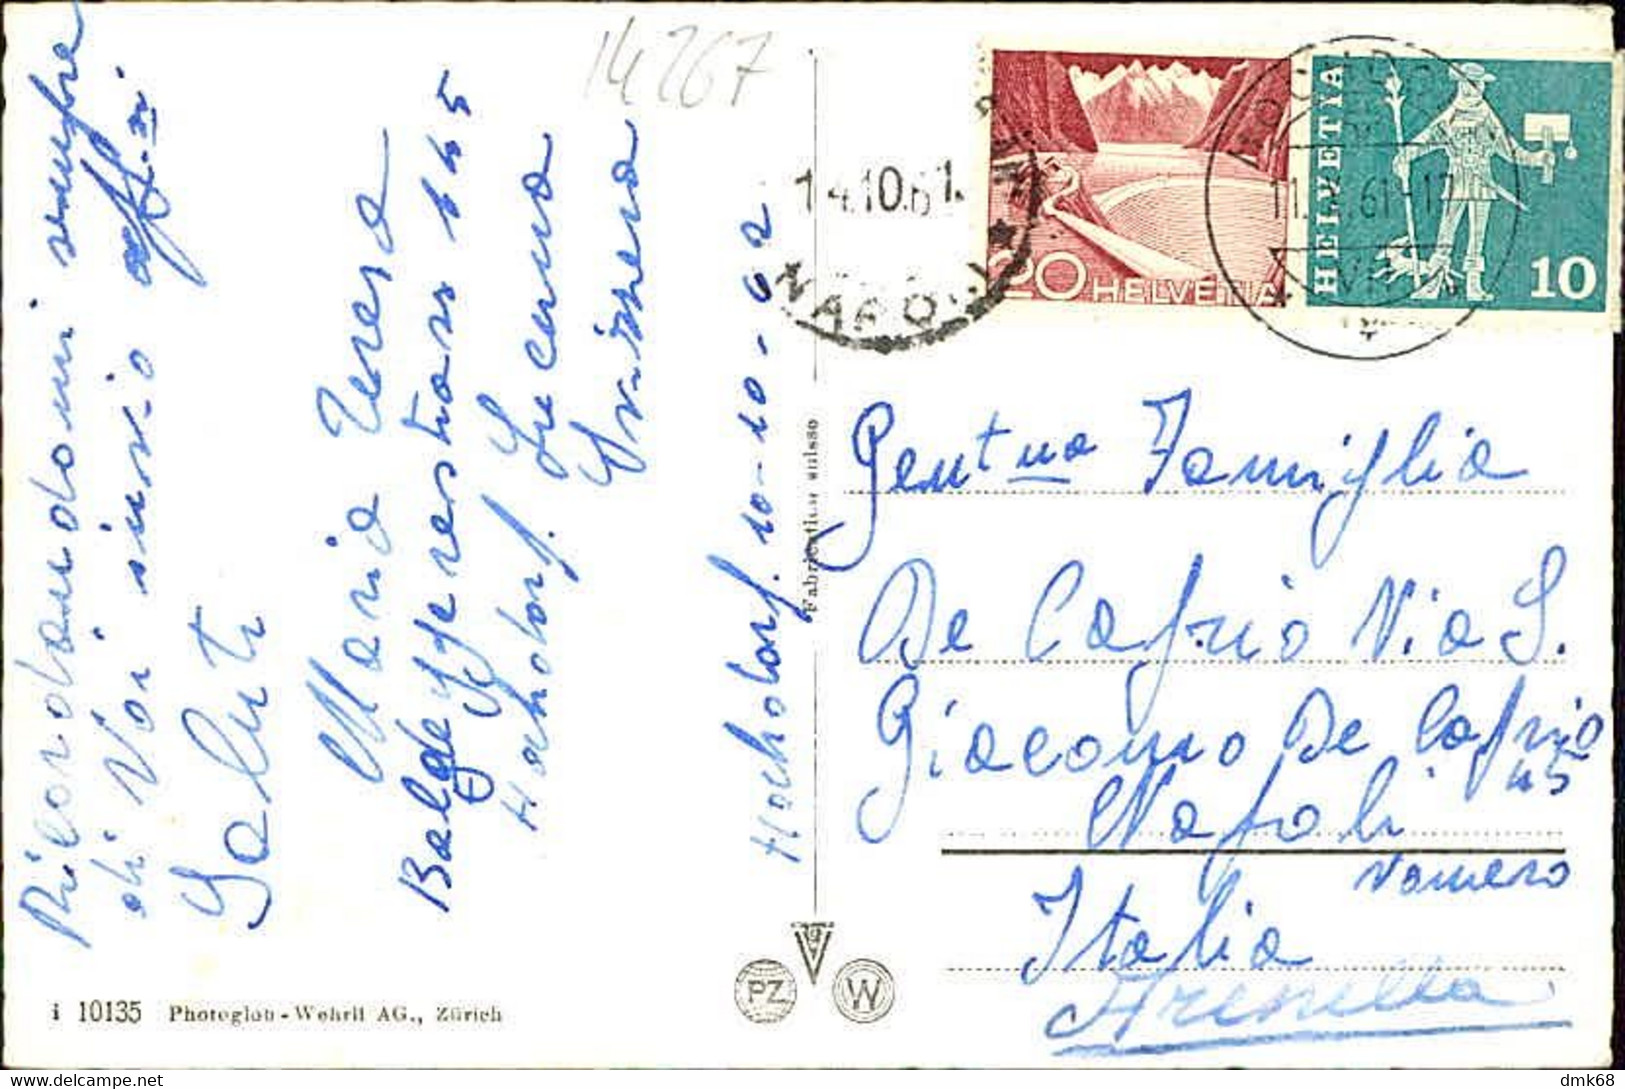 Ricordandomi sempre
di Voi invio aff.zi
Saluti
Maria Teresa
Baldeggerestrass 145
Hochdorf. Lucerna
Svizzera
Hochdorf. 10-10-62
14267
14.10.61.
NAPOLI
20 HELVETIA
HELVETIA
10
Fabrication suisse
Gent.ma Famiglia
De Caprio Via S.
Giacomo De Caprio
45
Napoli
Vomero
Italia
Arenella
PZ
W
i 10135 Photoglob-Wehrli AG., Zürich
dmk68